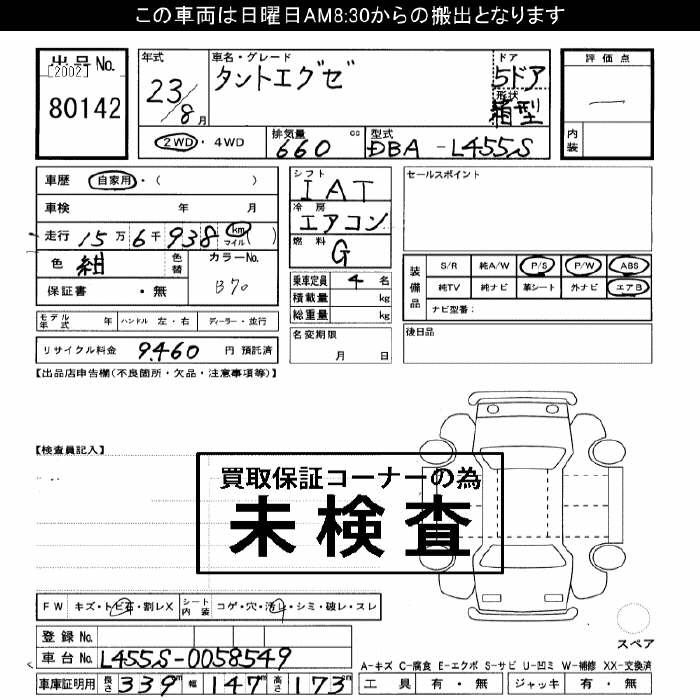 この車両は日曜日AM8:30からの搬出となります
出品No. [2002] 80142
年式 23/8月
車名・グレード タントエグゼ
ドア 5ドア
形状 箱型
評価点 —
内装
2WD・4WD
排気量 660 cc
型式 DBA-L455S
車歴 自家用・( )
車検 年 月
走行 15万6千938 km マイル ( )
色 紺 色替 カラーNo. B70
保証書 ・無
シフト IAT
冷房 エアコン
燃料 G
乗車定員 4名
積載量 kg
総重量 kg
セールスポイント
装備品 S/R 純A/W P/S P/W ABS
純TV 純ナビ 革シート 外ナビ エアB
ナビ型番:
モデル年式 年 ハンドル 左・右 ディーラー・並行
名変期限 月 日
後日品
リサイクル料金 9,460 円 預託済
【出品店申告欄(不良箇所・欠品・注意事項等)】
【検査員記入】
買取保証コーナーの為
未検査
FW キズ・トビ石・割レX シート内装 コゲ・穴・汚レ・シミ・破レ・スレ
スペア
登録No.
車台No. L455S-0058549
A-キズ C-腐食 E-エクボ S-サビ U-凹ミ W-補修 XX-交換済
車庫証明用 長さ 339m 幅 147m 高さ 173cm
工具 有・無 ジャッキ 有・無